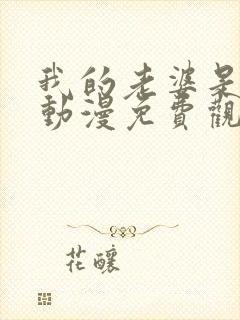 我的老婆是
動漫免費觀
花釀